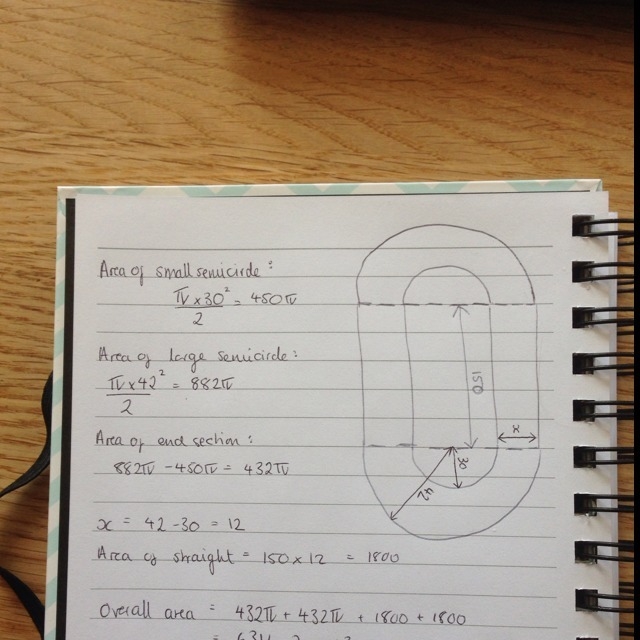 Area of small semicircle:
π × 30² = 450π
2
Area of large semicircle:
π × 42² = 882π
2
Area of end section:
882π - 450π = 432π
x = 42 - 30 = 12
Area of straight = 150 × 12 = 1800
Overall area = 432π + 432π + 1800 + 1800
150
x
30
42